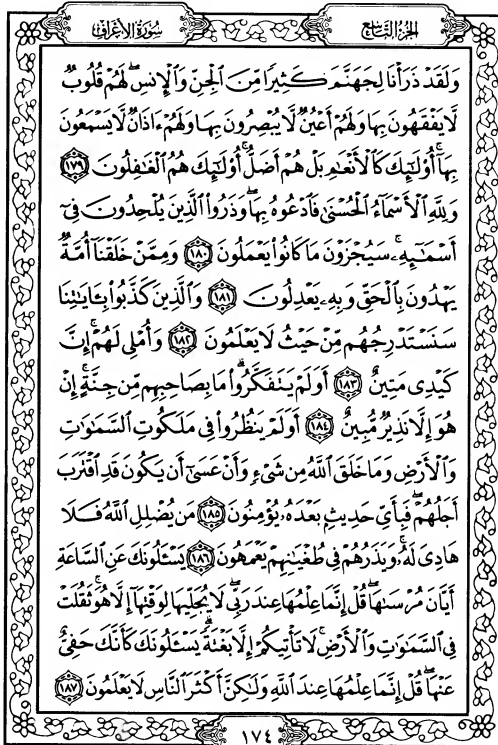 الجزء التاسع
سورة الأعراف
وَلَقَدْ ذَرَأْنَا لِجَهَنَّمَ كَثِيرًا مِّنَ ٱلْجِنِّ وَٱلْإِنسِ ۖ لَهُمْ قُلُوبٌ
لَّا يَفْقَهُونَ بِهَا وَلَهُمْ أَعْيُنٌ لَّا يُبْصِرُونَ بِهَا وَلَهُمْ ءَاذَانٌ لَّا يَسْمَعُونَ
بِهَآ ۚ أُو۟لَـٰٓئِكَ كَٱلْأَنْعَـٰمِ بَلْ هُمْ أَضَلُّ ۚ أُو۟لَـٰٓئِكَ هُمُ ٱلْغَـٰفِلُونَ ١٧٩
وَلِلَّهِ ٱلْأَسْمَآءُ ٱلْحُسْنَىٰ فَٱدْعُوهُ بِهَا ۖ وَذَرُوا۟ ٱلَّذِينَ يُلْحِدُونَ فِىٓ
أَسْمَـٰٓئِهِۦ ۚ سَيُجْزَوْنَ مَا كَانُوا۟ يَعْمَلُونَ ١٨٠ وَمِمَّنْ خَلَقْنَآ أُمَّةٌ
يَهْدُونَ بِٱلْحَقِّ وَبِهِۦ يَعْدِلُونَ ١٨١ وَٱلَّذِينَ كَذَّبُوا۟ بِـَٔايَـٰتِنَا
سَنَسْتَدْرِجُهُم مِّنْ حَيْثُ لَا يَعْلَمُونَ ١٨٢ وَأُمْلِى لَهُمْ ۚ إِنَّ
كَيْدِى مَتِينٌ ١٨٣ أَوَلَمْ يَتَفَكَّرُوا۟ ۗ مَا بِصَاحِبِهِم مِّن جِنَّةٍ ۚ إِنْ
هُوَ إِلَّا نَذِيرٌ مُّبِينٌ ١٨٤ أَوَلَمْ يَنظُرُوا۟ فِى مَلَكُوتِ ٱلسَّمَـٰوَٰتِ
وَٱلْأَرْضِ وَمَا خَلَقَ ٱللَّهُ مِن شَىْءٍ وَأَنْ عَسَىٰٓ أَن يَكُونَ قَدِ ٱقْتَرَبَ
أَجَلُهُمْ ۖ فَبِأَىِّ حَدِيثٍۭ بَعْدَهُۥ يُؤْمِنُونَ ١٨٥ مَن يُضْلِلِ ٱللَّهُ فَلَا
هَادِىَ لَهُۥ ۚ وَيَذَرُهُمْ فِى طُغْيَـٰنِهِمْ يَعْمَهُونَ ١٨٦ يَسْـَٔلُونَكَ عَنِ ٱلسَّاعَةِ
أَيَّانَ مُرْسَىٰهَا ۖ قُلْ إِنَّمَا عِلْمُهَا عِندَ رَبِّى ۖ لَا يُجَلِّيهَا لِوَقْتِهَآ إِلَّا هُوَ ۚ ثَقُلَتْ
فِى ٱلسَّمَـٰوَٰتِ وَٱلْأَرْضِ ۚ لَا تَأْتِيكُمْ إِلَّا بَغْتَةً ۗ يَسْـَٔلُونَكَ كَأَنَّكَ حَفِىٌّ
عَنْهَا ۖ قُلْ إِنَّمَا عِلْمُهَا عِندَ ٱللَّهِ وَلَـٰكِنَّ أَكْثَرَ ٱلنَّاسِ لَا يَعْلَمُونَ ١٨٧
١٧٤